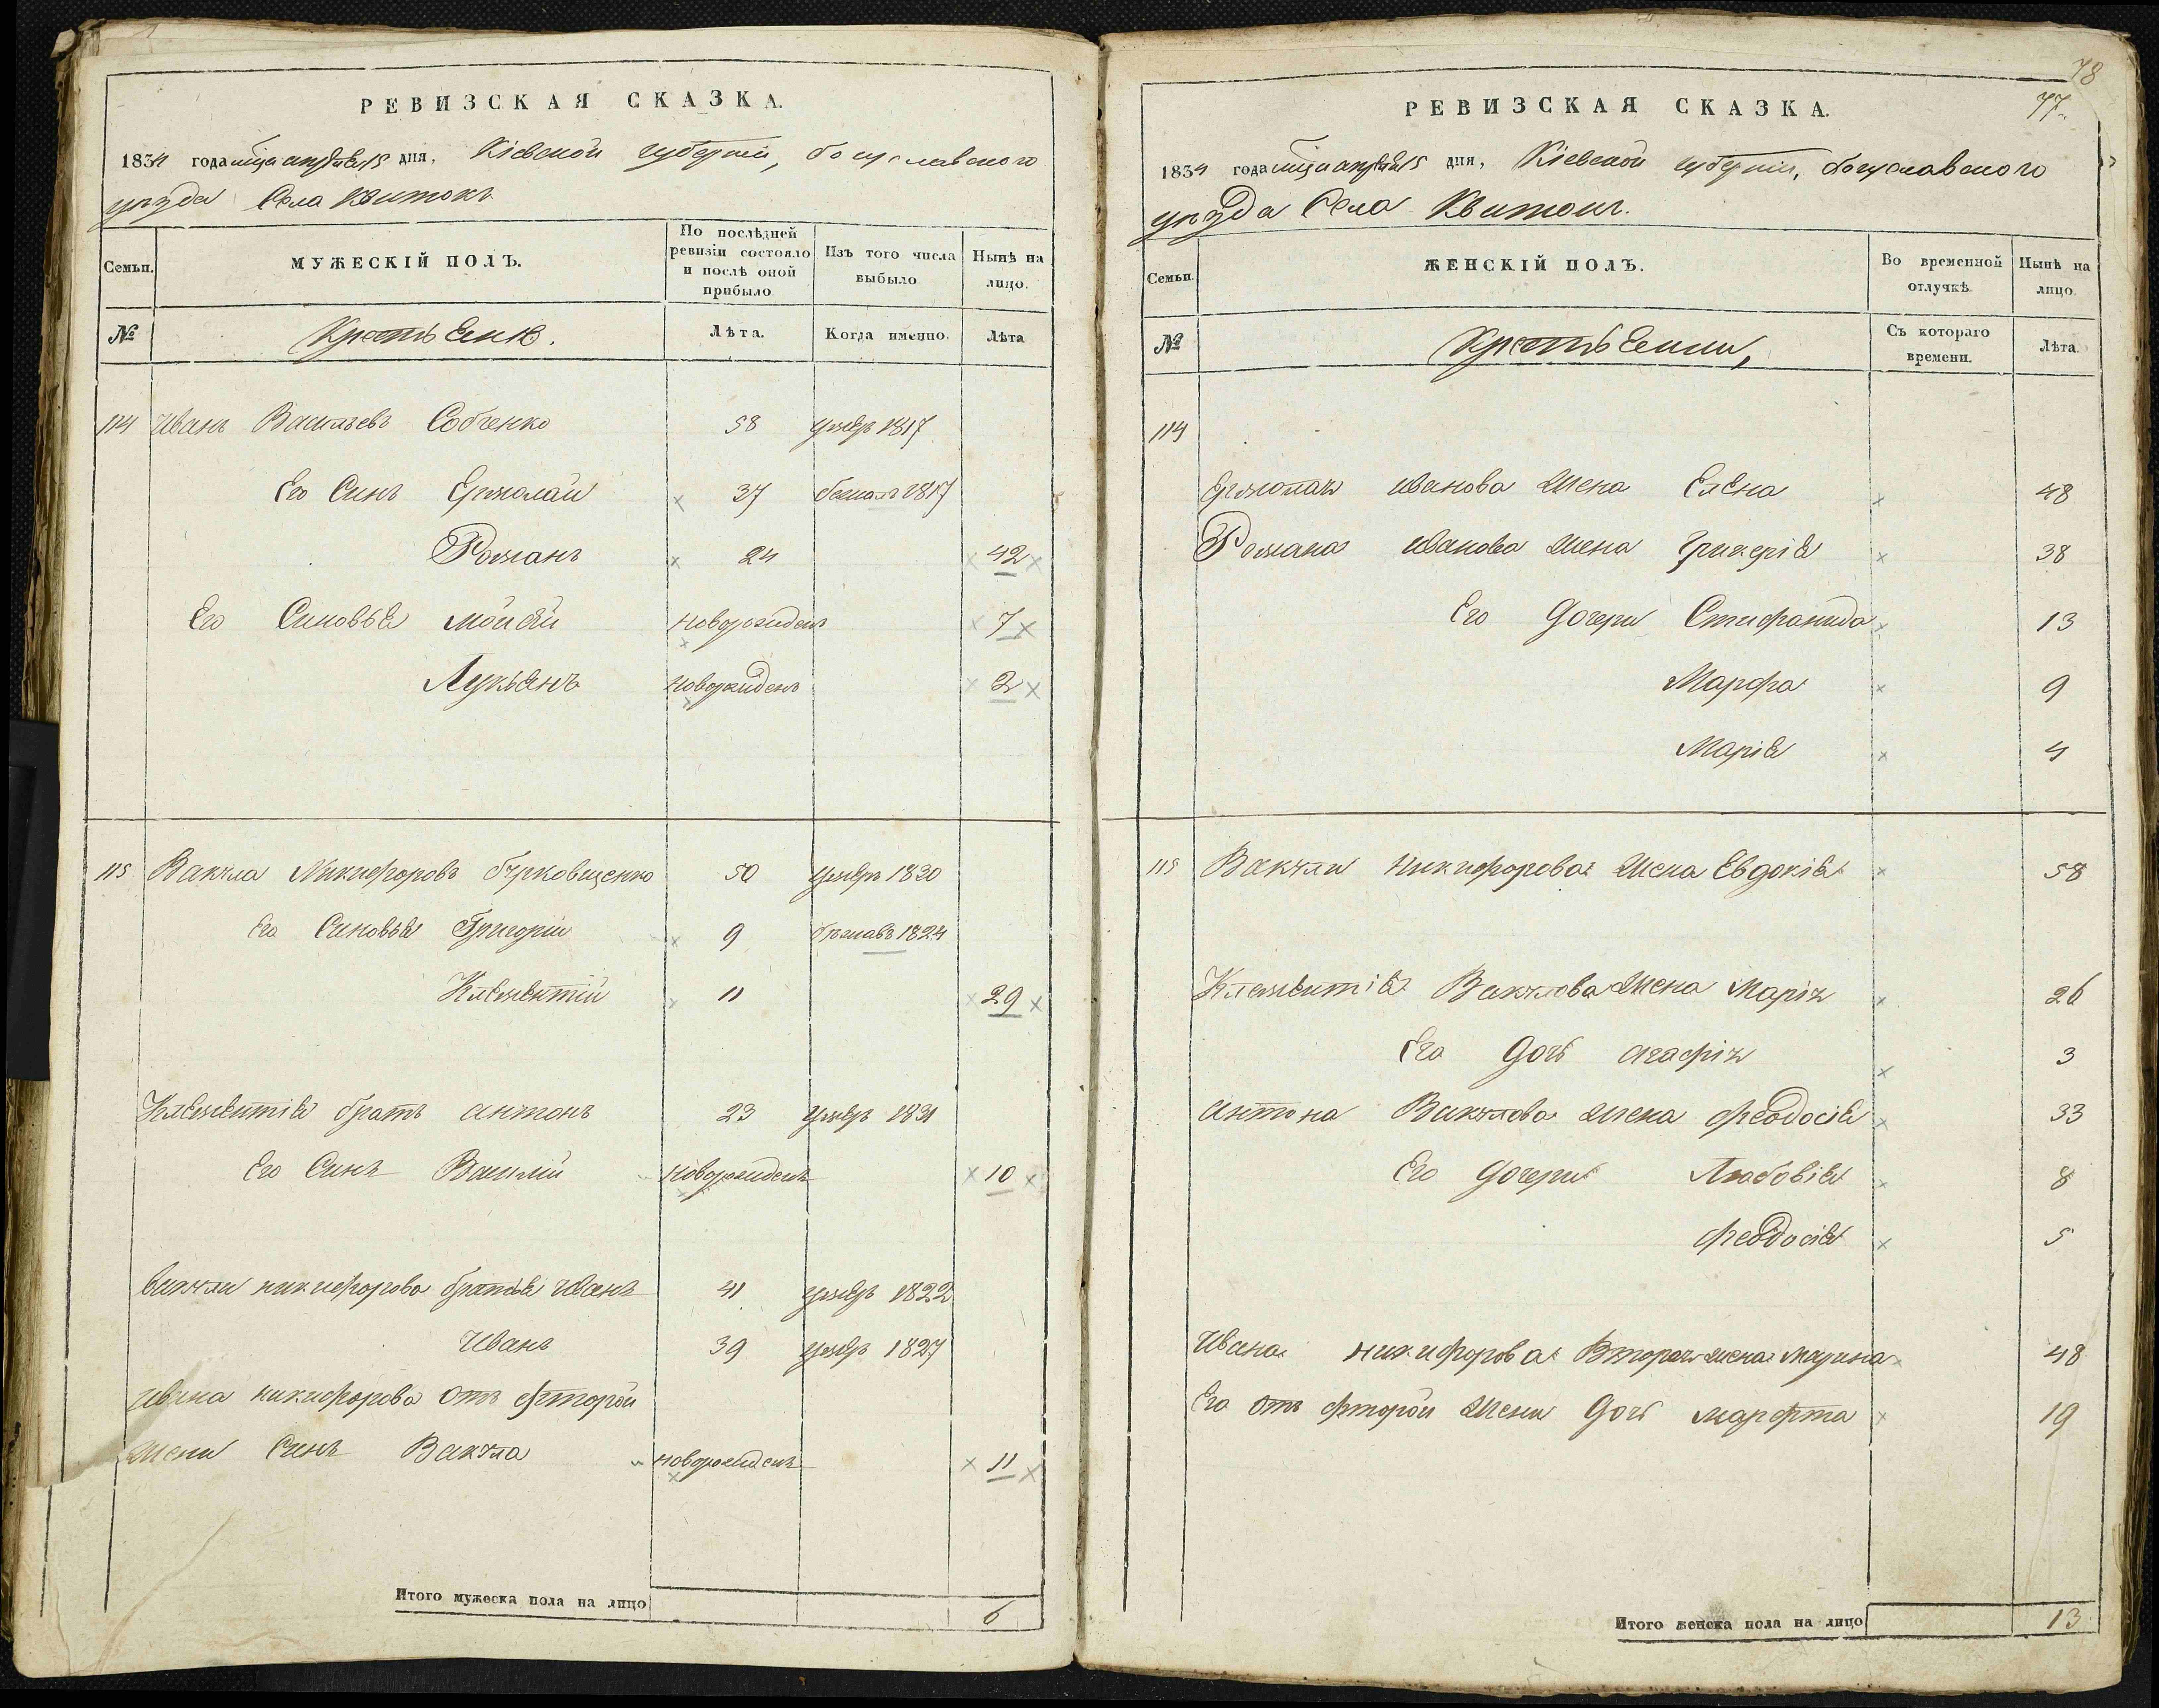 РЕВИЗСКАЯ СКАЗКА.
1834 года мца апреля 15 дня, Кіевской губерніи, богуславского
уезда Села Квитокъ
Семьи. МУЖЕСКІЙ ПОЛЪ. По послѣдней ревизіи состояло и послѣ оной прибыло Изъ того числа выбыло Нынѣ на лицо.
№ Крестьяне. Лѣта. Когда именно. Лѣта
114 Иванъ Васильевъ Собченко 58 умеръ 1817
Его Синъ Ермолай 37 бежалъ 1817
Романъ 24 42
Его Синовья Мойсѣй новорожденъ 7
Лукьянъ новорожденъ 2
115 Вакула Никифоровъ бурковщенко 50 умеръ 1820
Его Синовья Григорій 9 бежавъ 1824
Клементій 11 29
Клементія братъ антонъ 23 умеръ 1831
Его Синъ Василій новорожденъ 10
Вакули никифорова братья Иванъ 41 умеръ 1822
Иванъ 39 умеръ 1827
Ивана никифорова Отъ фторой
Жени Синъ Вакула новорожденъ 11
Итого мужеска пола на лицо 6
78
77.
РЕВИЗСКАЯ СКАЗКА.
1834 года мца апреля 15 дня, Кіевской губерніи, богуславского
уезда Села Квитокъ.
Семьи. ЖЕНСКІЙ ПОЛЪ. Во временной отлучкѣ Нынѣ на лицо
№ Крестьянки, Съ котораго времени. Лѣта.
114
Ермолая иванова Жена Елена 48
Романа иванова Жена Гликерія 38
Его Дочери Стифанида 13
Марфа 9
Марія 4
115 Вакули Никифорова Жена Евдокія 58
Клементія Вакулова Жена Марія 26
Его Дочь агафія 3
антона Вакулова Жена феодосія 33
Его Дочери Любовія 8
феодосія 5
Ивана никифорова Вторая жена марина 48
Его отъ фторой Жени Дочь марфта 19
Итого женска пола на лицо 13